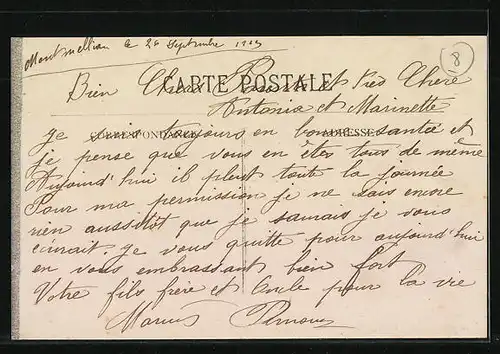 Montmellian le 26 Septembre 1903
8
CARTE POSTALE
Bien Chers et très Chère
Antonia et Marinette
CORRESPONDANCE
ADRESSE
je suis toujours en bonne santée et
je pense que vous en êtes tous de même
Aujourd'hui il pleut toute la journée
Pour ma permission je ne sais encore
rien aussitôt que je saurais je vous
ecirait. je vous quitte pour aujourd'hui
en vous embrassant bien fort
Votre fils frère et Oncle pour la vie
Marius